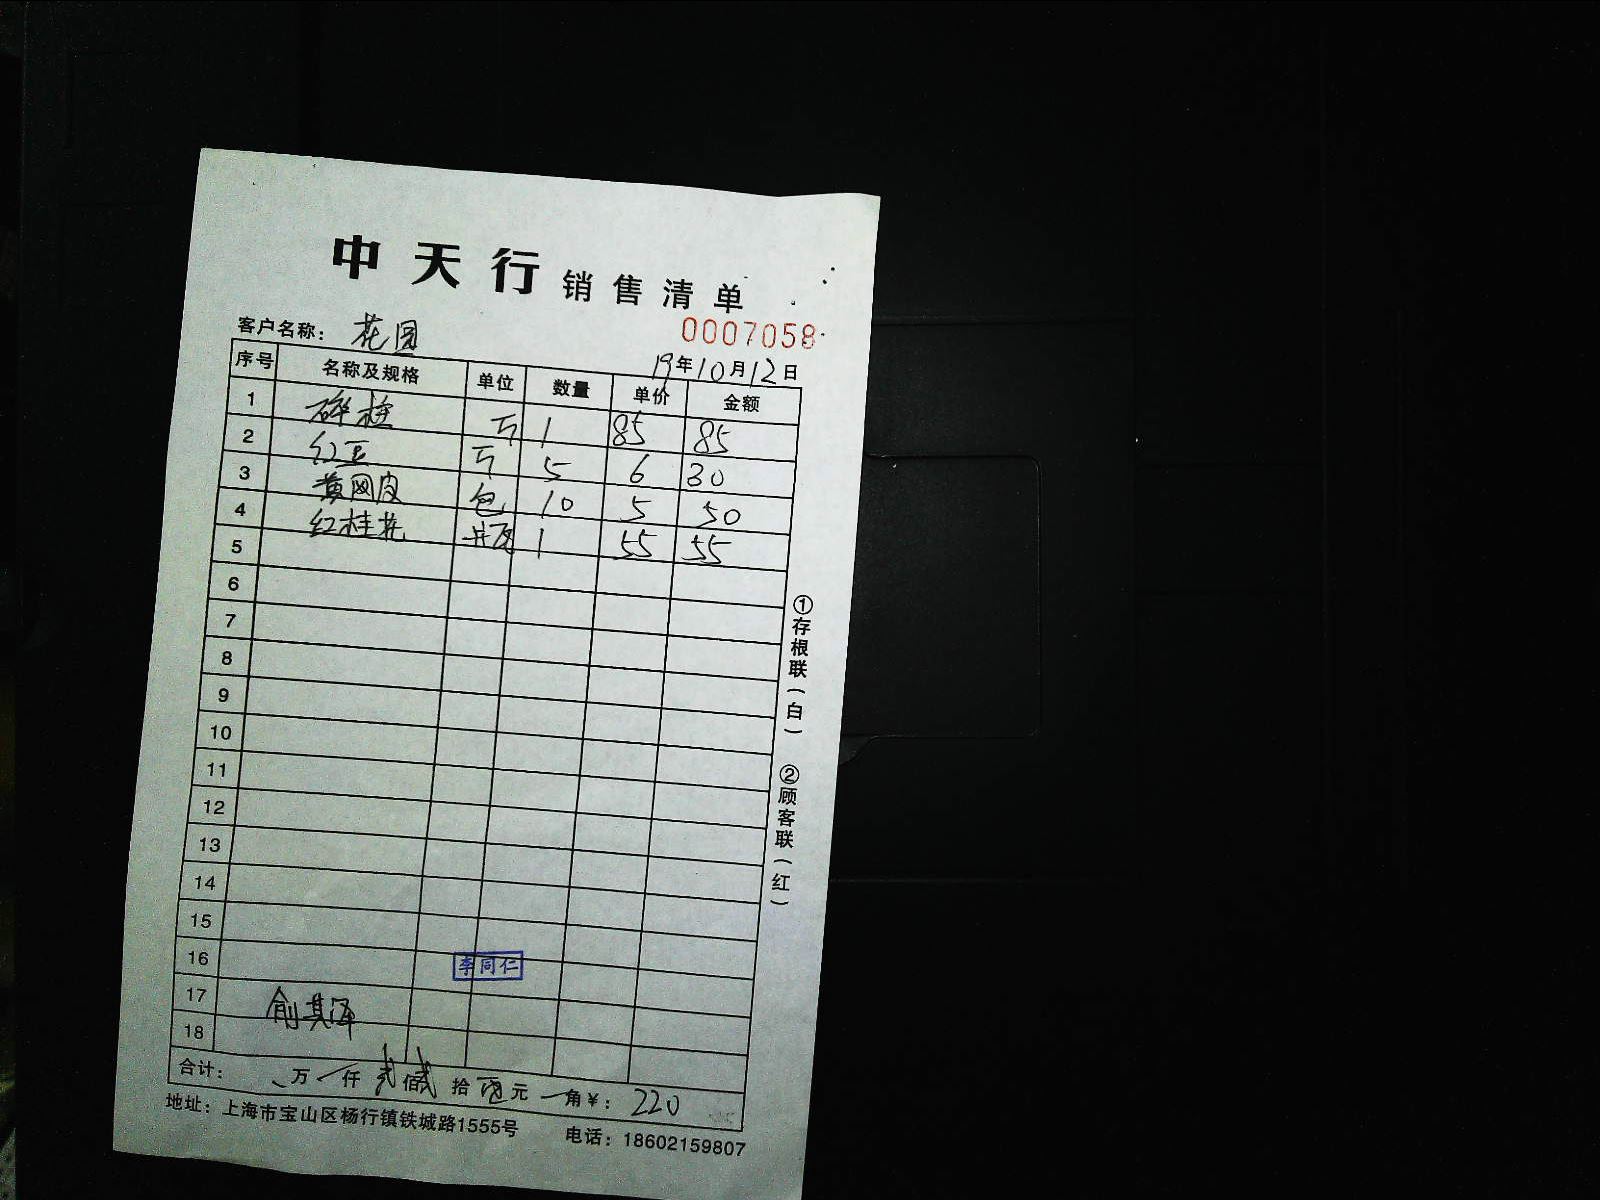 中天行 销售清单
客户名称： 花园
0007058
19年10月12日
序号 名称及规格 单位 数量 单价 金额
1 碎桂 斤 1 85 85
2 红豆 斤 5 6 30
3 黄网皮 包 10 5 50
4 红桂花 瓶 1 55 55
5
6
7
8
9
10
11
12
13
14
15
16 李同仁
17 俞其泽
18
合计： 万 仟 贰佰贰拾 元 角￥： 220
地址：上海市宝山区杨行镇铁城路1555号 电话：18602159807
①存根联（白） ②顾客联（红）